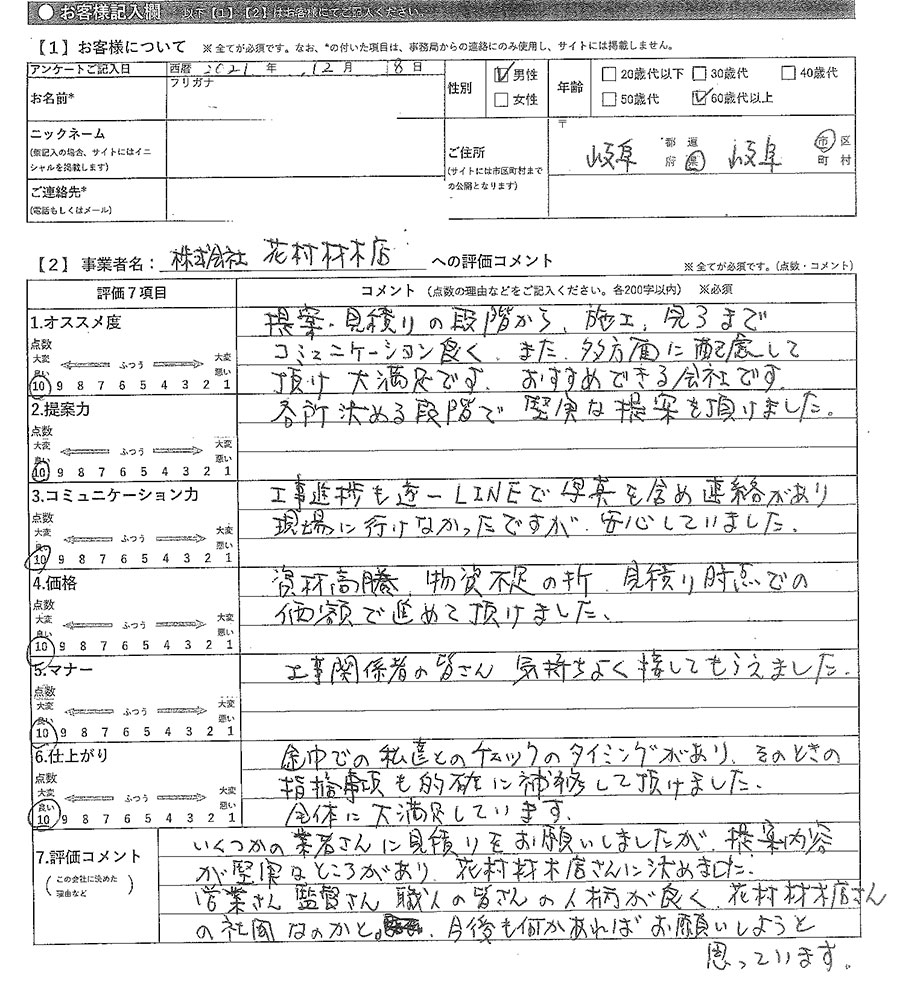 ● お客様記入欄 以下【1】【2】はお客様にてご記入ください。
【1】お客様について ※ 全てが必須です。なお、*の付いた項目は、事務局からの連絡にのみ使用し、サイトには掲載しません。
アンケートご記入日 西暦 2021 年 12 月 18 日
性別 男性 女性
年齢 20歳代以下 30歳代 40歳代 50歳代 60歳代以上
お名前* フリガナ
ニックネーム
(仮記入の場合、サイトにはイニ
シャルを掲載します)
ご連絡先*
(電話もしくはメール)
ご住所
(サイトには市区町村まで
の公開となります)
〒
岐阜 都道府県 岐阜 市区町村
【2】事業者名: 株式会社 花村材木店 への評価コメント ※ 全てが必須です。(点数・コメント)
評価7項目 コメント (点数の理由などをご記入ください。各200字以内) ※必須
1.オススメ度
点数
大変良い ふつう 大変悪い
10 9 8 7 6 5 4 3 2 1
提案・見積りの段階から、施工、完了まで
コミュニケーション良く、また、多方面に配慮して
頂け 大満足です。おすすめできる会社です。
2.提案力
点数
大変良い ふつう 大変悪い
10 9 8 7 6 5 4 3 2 1
各所決める段階で 堅実な提案を頂けました。
3.コミュニケーション力
点数
大変良い ふつう 大変悪い
10 9 8 7 6 5 4 3 2 1
工事進捗も逐一LINEで写真を含め連絡があり
現場に行けなかったですが、安心していました。
4.価格
点数
大変良い ふつう 大変悪い
10 9 8 7 6 5 4 3 2 1
資材高騰、物資不足の折、見積り時点での
価額で進めて頂けました。
5.マナー
点数
大変良い ふつう 大変悪い
10 9 8 7 6 5 4 3 2 1
工事関係者の皆さん 気持ちよく接してもらえました。
6.仕上がり
点数
大変良い ふつう 大変悪い
10 9 8 7 6 5 4 3 2 1
途中での私達とのチェックのタイミングがあり、そのときの
指摘事項も的確に補修して頂けました。
全体に大満足しています。
7.評価コメント
(この会社に決めた
理由など)
いくつかの業者さんに見積りをお願いしましたが、提案内容
が堅実なところがあり、花村材木店さんに決めました。
営業さん 監督さん 職人の皆さんの人柄が良く、花村材木店さん
の社風なのかと。今後も何かあればお願いしようと
思っています。